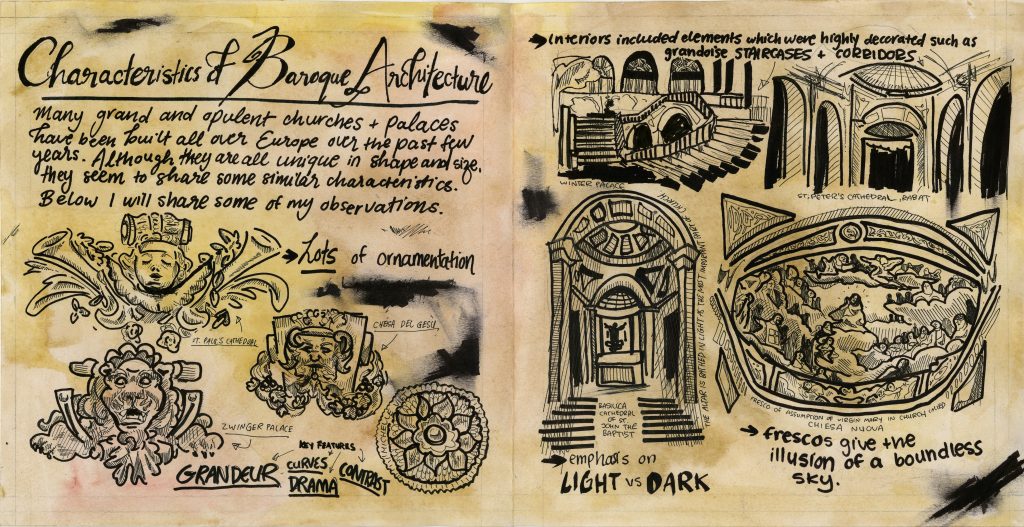 Characteristics of Baroque Architecture
Many grand and opulent churches + palaces
have been built all over Europe over the past few
years. Although they are all unique in shape and size,
they seem to share some similar characteristics.
Below I will share some of my observations.
→ Lots of ornamentation
ST. PAUL'S CATHEDRAL
CHIESA DEL GESU,
ZWINGER PALACE
KEY FEATURES
GRANDEUR
CURVES
DRAMA
CONTRAST
→ Interiors included elements which were highly decorated such as
grandoise STAIRCASES + CORRIDORS
WINTER PALACE
ST. PETER'S CATHEDRAL, RABAT
THE ALTAR IS BATHED IN LIGHT AS THE MOST IMPORTANT
BASILICA
CATHEDRAL
OF ST.
JOHN THE
BAPTIST
→ emphasis on
LIGHT VS DARK
FRESCO OF ASSUMPTION OF VIRGIN MARY IN CHURCH CALLED
CHIESA NUOVA
→ frescos give the
illusion of a boundless
sky.